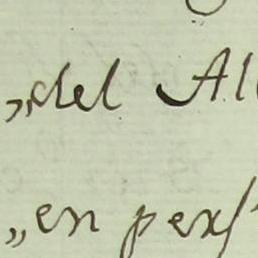 „del Al
„en pers